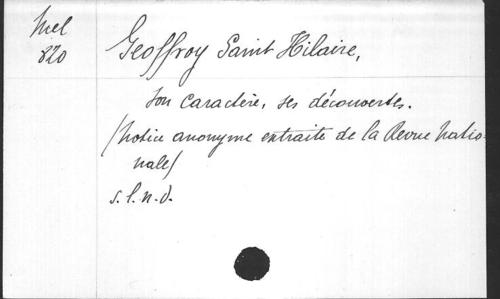 Mel
820
Geoffroy Saint Hilaire,
son caractère, ses découvertes.
(Notice anonyme extraite de la Revue Natio-
nale)
s. l. n. d.